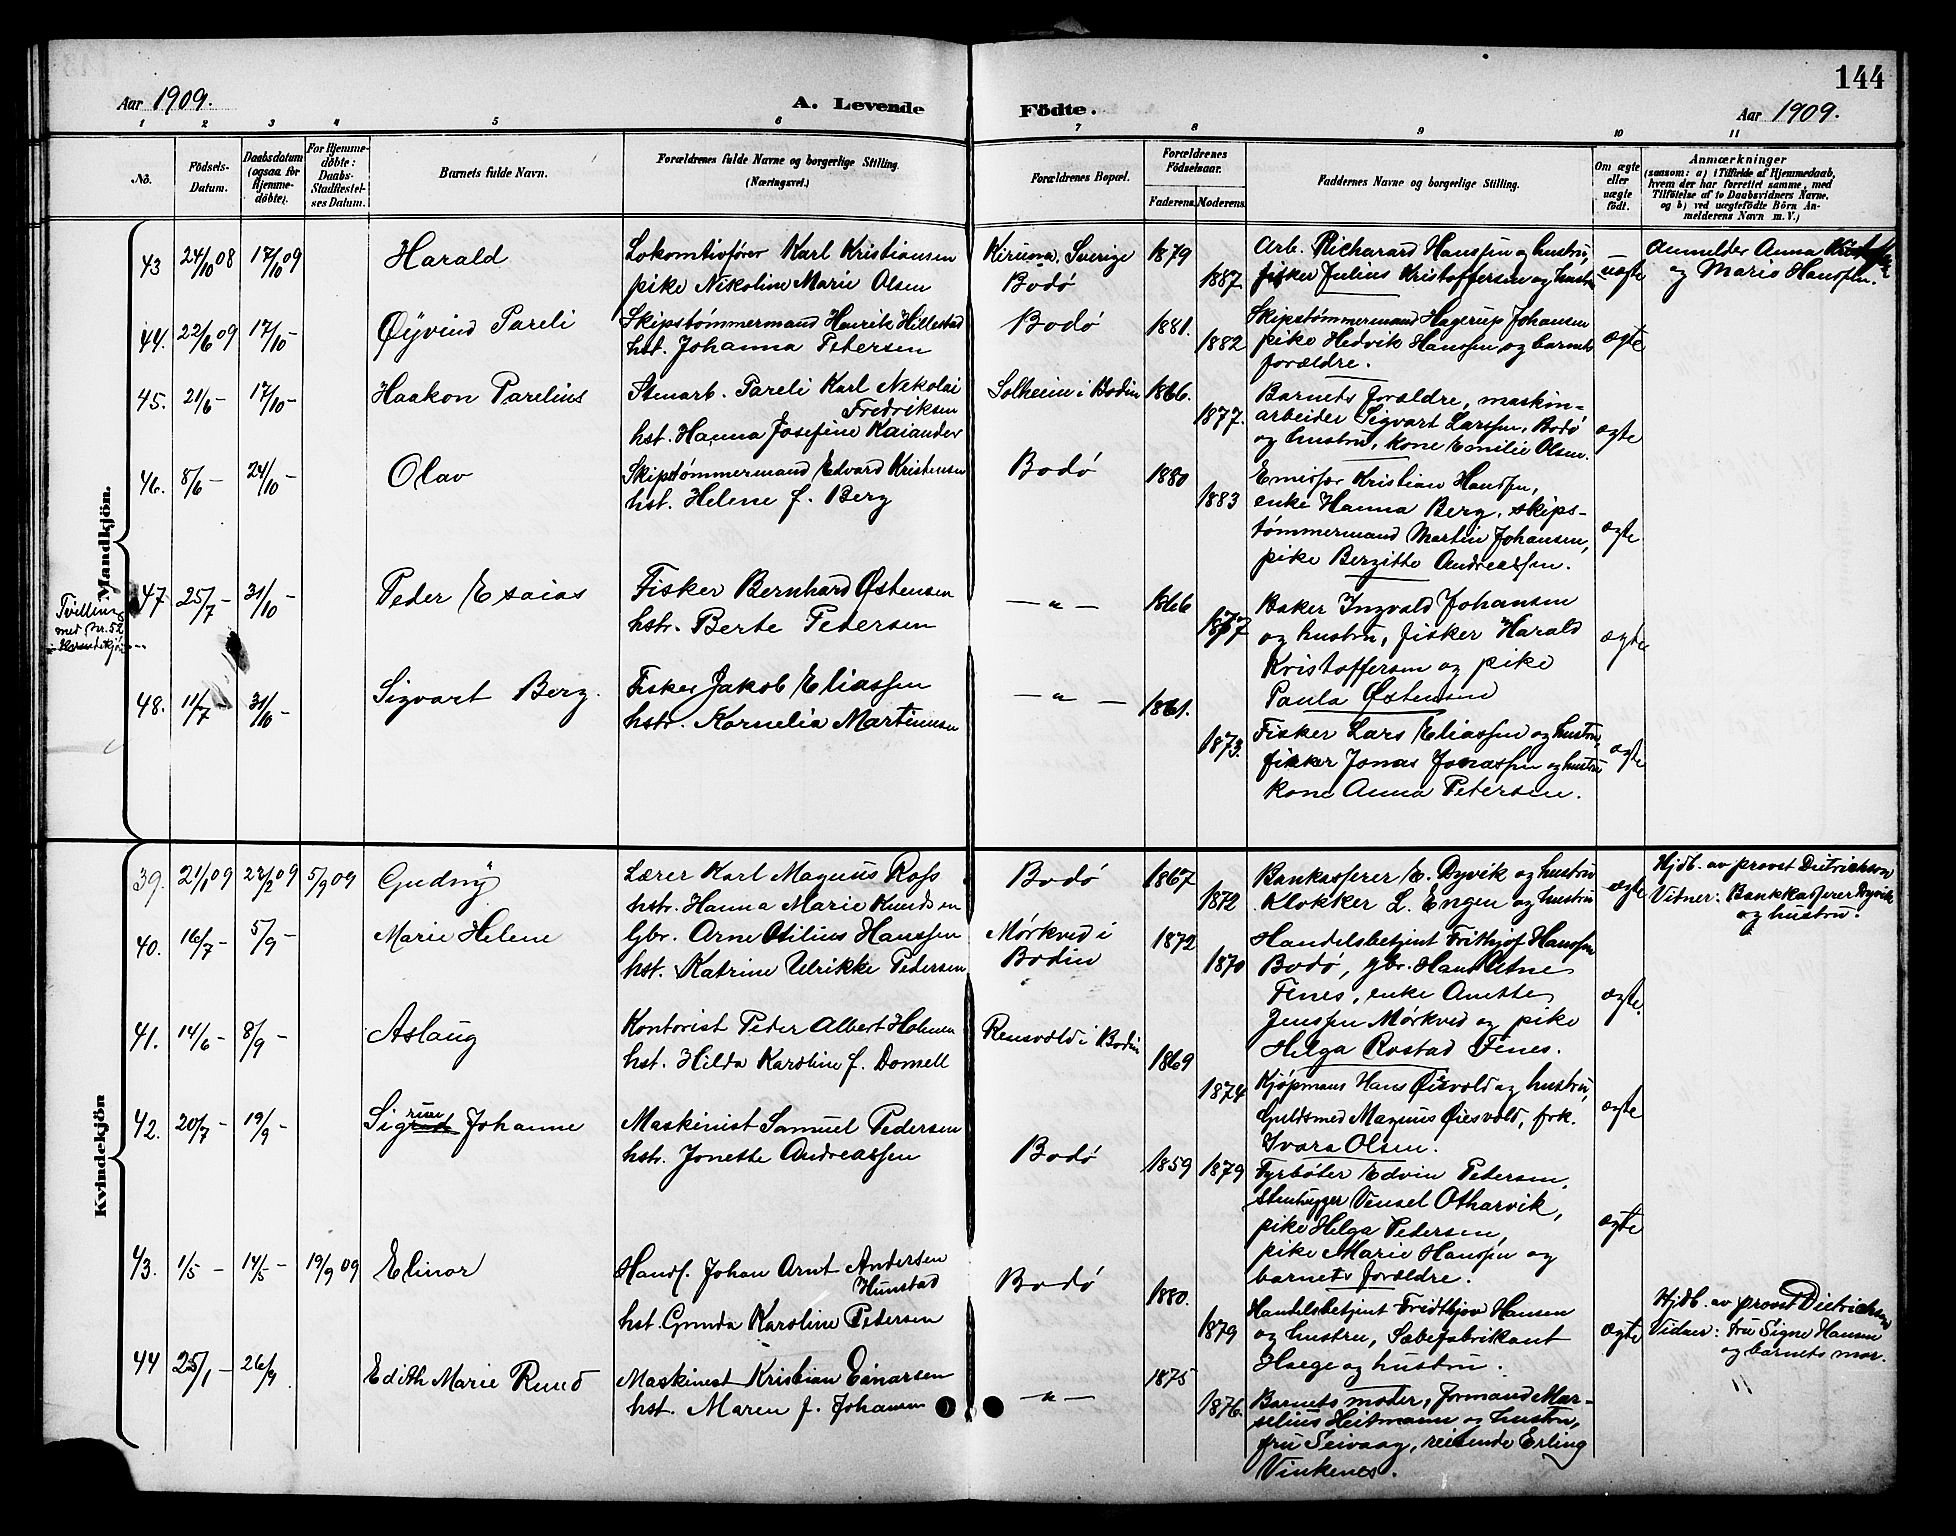 144
Aar 1909. A. Levende Födte. Aar 1909.
1 2 3 4 5 6 7 8 9 10 11
No. Fødsels-Datum. Daabsdatum (ogsaa for Hjemme-døbte). For Hjemme-døbte: Daabs-Stadfæstel-ses Datum. Barnets fulde Navn. Forældrenes fulde Navne og borgerlige Stilling. (Næringsvei.) Forældrenes Bopæl. Forældrenes Fødselsaar. Faderens. Moderens. Faddernes Navne og borgerlige Stilling. Om ægte eller uægte født. Anmærkninger
(saasom: a) i Tilfælde af Hjemmedaab, hvem der har forrettet samme, med Tilføielse af to Daabsvidners Navne. og b) ved uægtefødte Börn An-melderens Navn m. V.)
Mandkjön.
43 24/10 08 17/10 09 Harald Lokomtivfører Karl Kristiansen Kiruna, Sverige 1879 Arb. Richarard Hanssen og hustru, uægte Anmelder Anna
pike Nikoline Marie Olsen Bodø 1887. fisker Julius Kristoffersen og hustru og Marie Hanssen.
44. 22/6 09 17/10 - Øyvind Pareli Skipstømmermand Henrik Hillestad Bodø 1881. Skipstømmermand Hagerup Johansen ægte
hst. Johanna Petersen 1882 pike Hedvik Hanssen og barnets
forældre.
45. 21/6 - 17/10 - Haakon Parelius Stenarb. Pareli Karl Nikolai Solheim i Bodin 1866. Barnets forældre, maskin-
Fredriksen 1877. arbeider Sigvart Larssen, Bodø
hst. Hanna Josefine Kaiander og hustru, kone Emilie Olsen. ægte
46. 8/6 - 24/10 - Olav Skipstømmermand Edvard Kristensen Bodø 1880 Emisær Kristian Hanssen,
hst. Helene f. Berg 1883 enke Hanna Berg, skips-
tømmermand Martin Johansen, ægte
pike Bergitte Andreassen.
Tvilling
med Nr. 52
i Kvindekjøn
47 25/7 - 31/10 - Peder Esaias Fisker Bernhard Østensen — " — 1866 Baker Ingvald Johansen
hstr. Berte Petersen 1877 og hustru, fisker Harald ægte
Kristoffersen og pike
Paula Østensen
48. 11/7 31/10 - Sigvart Berg. Fisker Jakob Eliassen — " — 1861.
hstr. Kornelia Martinusen 1873. Fisker Lars Eliassen og hustru,
fisker Jonas Jonassen og hustru ægte
kone Anna Petersen.
Kvindekjön
39. 21/1 09 22/2 09 5/9 09 Gudny Lærer Karl Magnus Ross Bodø 1867 Bankasserer E. Dyvik og hustru ægte Hjdb. av provst Dietrichson
hstr. Hanna Marie Knudsen 1872 Klokker L. Engen og hustru Vitner: Bankkasserer Dyvik
og hustru.
40. 16/7 - 5/9 - Marie Helene Gbr. Arne Otilius Hanssen Mørkved i 1872 Handelsbetjent Frithjof Hanssen
hst. Katrine Ulrikke Pedersen Bodin 1870 Bodø, gbr. Hans Arne
Fenes, enke Anette ægte.
Jenssen Mørkved og pike
Helga Rostad Fenes.
41. 14/6 - 8/9 - Aslaug Kontorist Peder Albert Holmen Rensvold i Bodin 1869
hst. Hilda Karoline f. Domell 1874 Kjøpmans Hans Øiesvold og hustru,
Guldsmed Magnus Øiesvold, frk. ægte
Ivara Olsen.
42. 20/7 - 19/9 - Sigrun Johanne Maskinist Samuel Pedersen Bodø 1859 1879 Fyrbøter Edvin Petersen,
hstr. Jonette Andreassen Stenhugger Vensel Otharvik,
pike Helga Petersen, ægte
pike Marie Hanssen og
barnets forældre.
43. 1/5 - 14/5 - 19/9 09 Elinor Handl. Johan Arnt Andersen Bodø 1880. Handelsbetjent Fridthjov Hansen Hjdb. av provst Dietrichson
Hunstad 1879 og hustru, Sæbefabrikant ægte Vidner: fru Signe Hansen
hst. Gunda Karoline Petersen Haege og hustru. og barnets mor.
44 25/1 - 26/9 Edith Marie Ruud Maskinist Kristian Einarsen — " — 1875
hst. Maren f. Johansen 1876. Barnets moder, formand Mar-
selius Heitmann og hustru,
fru Seivaag, reisende Erling
Vinkenes.